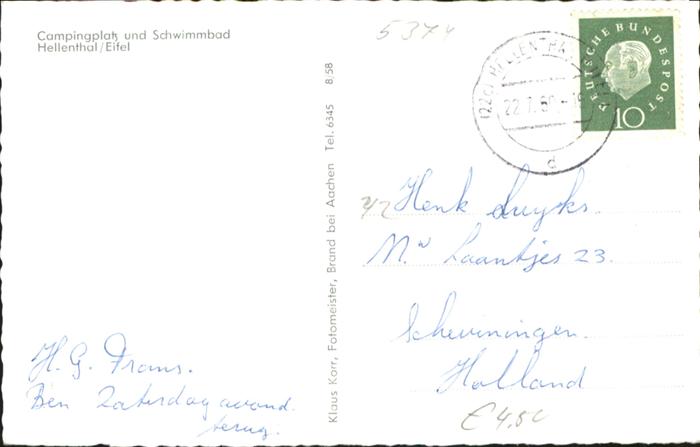 Campingplatz und Schwimmbad
Hellenthal/Eifel
5374
DEUTSCHE BUNDESPOST
10
(22c) HELLENTHAL
22.7.60
d
Klaus Korr, Fotomeister, Brand bei Aachen Tel. 6345 8/58
Henk Luyks.
Nw Laantjes 23.
Scheveningen.
Holland
H. G. Frans.
Ben Zaterdagavond.
terug.